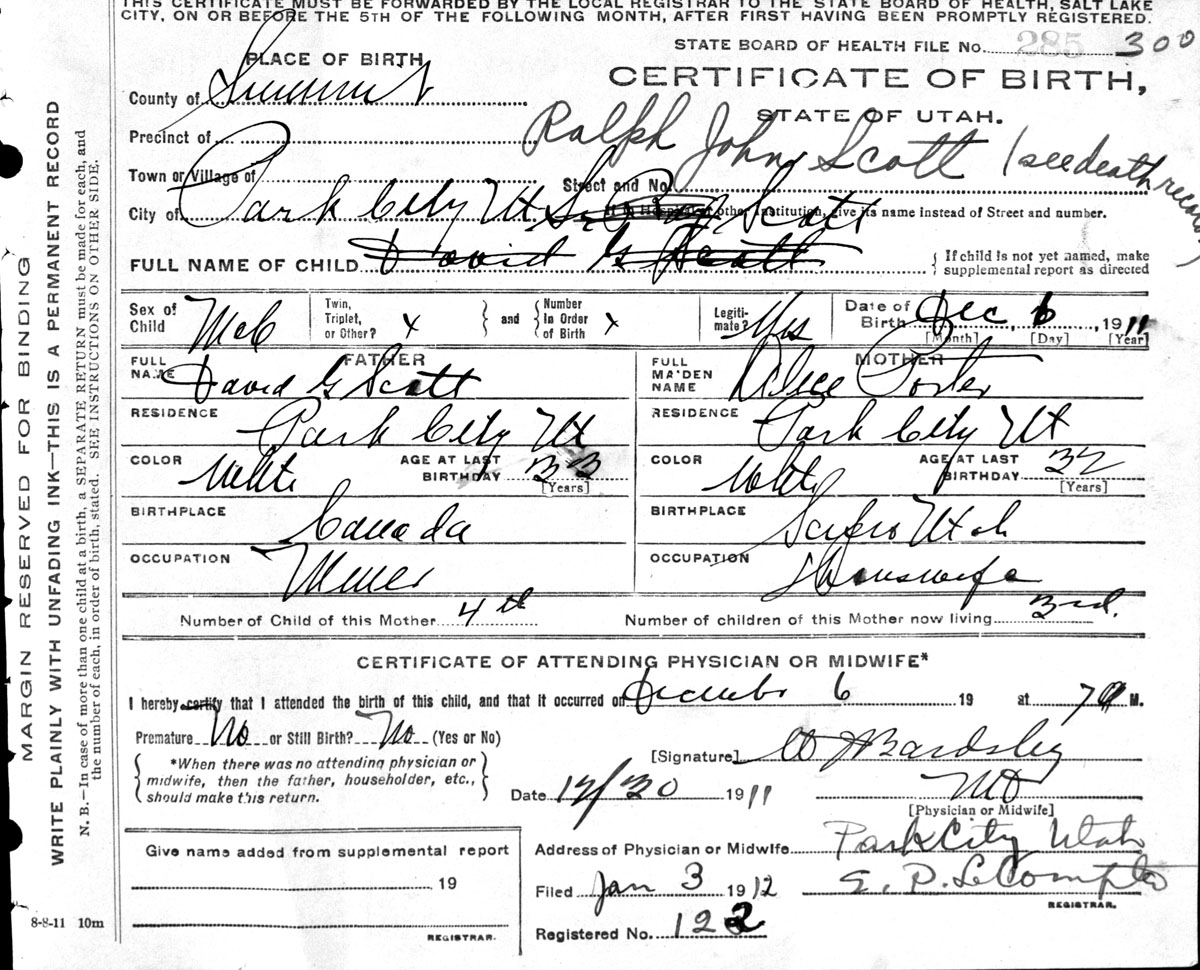 THIS CERTIFICATE MUST BE FORWARDED BY THE LOCAL REGISTRAR TO THE STATE BOARD OF HEALTH, SALT LAKE
CITY, ON OR BEFORE THE 5TH OF THE FOLLOWING MONTH, AFTER FIRST HAVING BEEN PROMPTLY REGISTERED.
STATE BOARD OF HEALTH FILE No. 285 300
PLACE OF BIRTH
CERTIFICATE OF BIRTH,
County of Summit
STATE OF UTAH.
Precinct of
Ralph John Scott (see death record)
Town or Village of
Street and No.
City of Park City Ut Scott
If in Hospital or other institution, give its name instead of Street and number.
FULL NAME OF CHILD David G Scott
If child is not yet named, make
supplemental report as directed
Sex of Child Male
Twin, Triplet, or Other? x
and
Number In Order of Birth x
Legitimate? Yes
Date of Birth Dec, 6, 1911
[Month] [Day] [Year]
FATHER
FULL NAME David G Scott
MOTHER
FULL MAIDEN NAME Alice Porter
RESIDENCE Park City Ut
RESIDENCE Park City Ut
COLOR White AGE AT LAST BIRTHDAY 33 [Years]
COLOR White AGE AT LAST BIRTHDAY 32 [Years]
BIRTHPLACE Canada
BIRTHPLACE Scipio Utah
OCCUPATION Miner
OCCUPATION Housewife
Number of Child of this Mother 4th
Number of children of this Mother now living 3rd.
CERTIFICATE OF ATTENDING PHYSICIAN OR MIDWIFE*
I hereby certify that I attended the birth of this child, and that it occurred on December 6 19 at 7 M.
Premature No or Still Birth? No (Yes or No)
[Signature] W J Bardsley
*When there was no attending physician or
midwife, then the father, householder, etc.,
should make this return.
Date 12/30 1911
MD
[Physician or Midwife]
Address of Physician or Midwife Park City Utah
Give name added from supplemental report
19
REGISTRAR.
Filed Jan 3 1912
E. P. LeCompte
REGISTRAR.
Registered No. 122
8-8-11 10m
MARGIN RESERVED FOR BINDING
WRITE PLAINLY WITH UNFADING INK—THIS IS A PERMANENT RECORD
N. B.—In case of more than one child at a birth, a SEPARATE RETURN must be made for each, and
the number of each, in order of birth, stated. SEE INSTRUCTIONS ON OTHER SIDE.